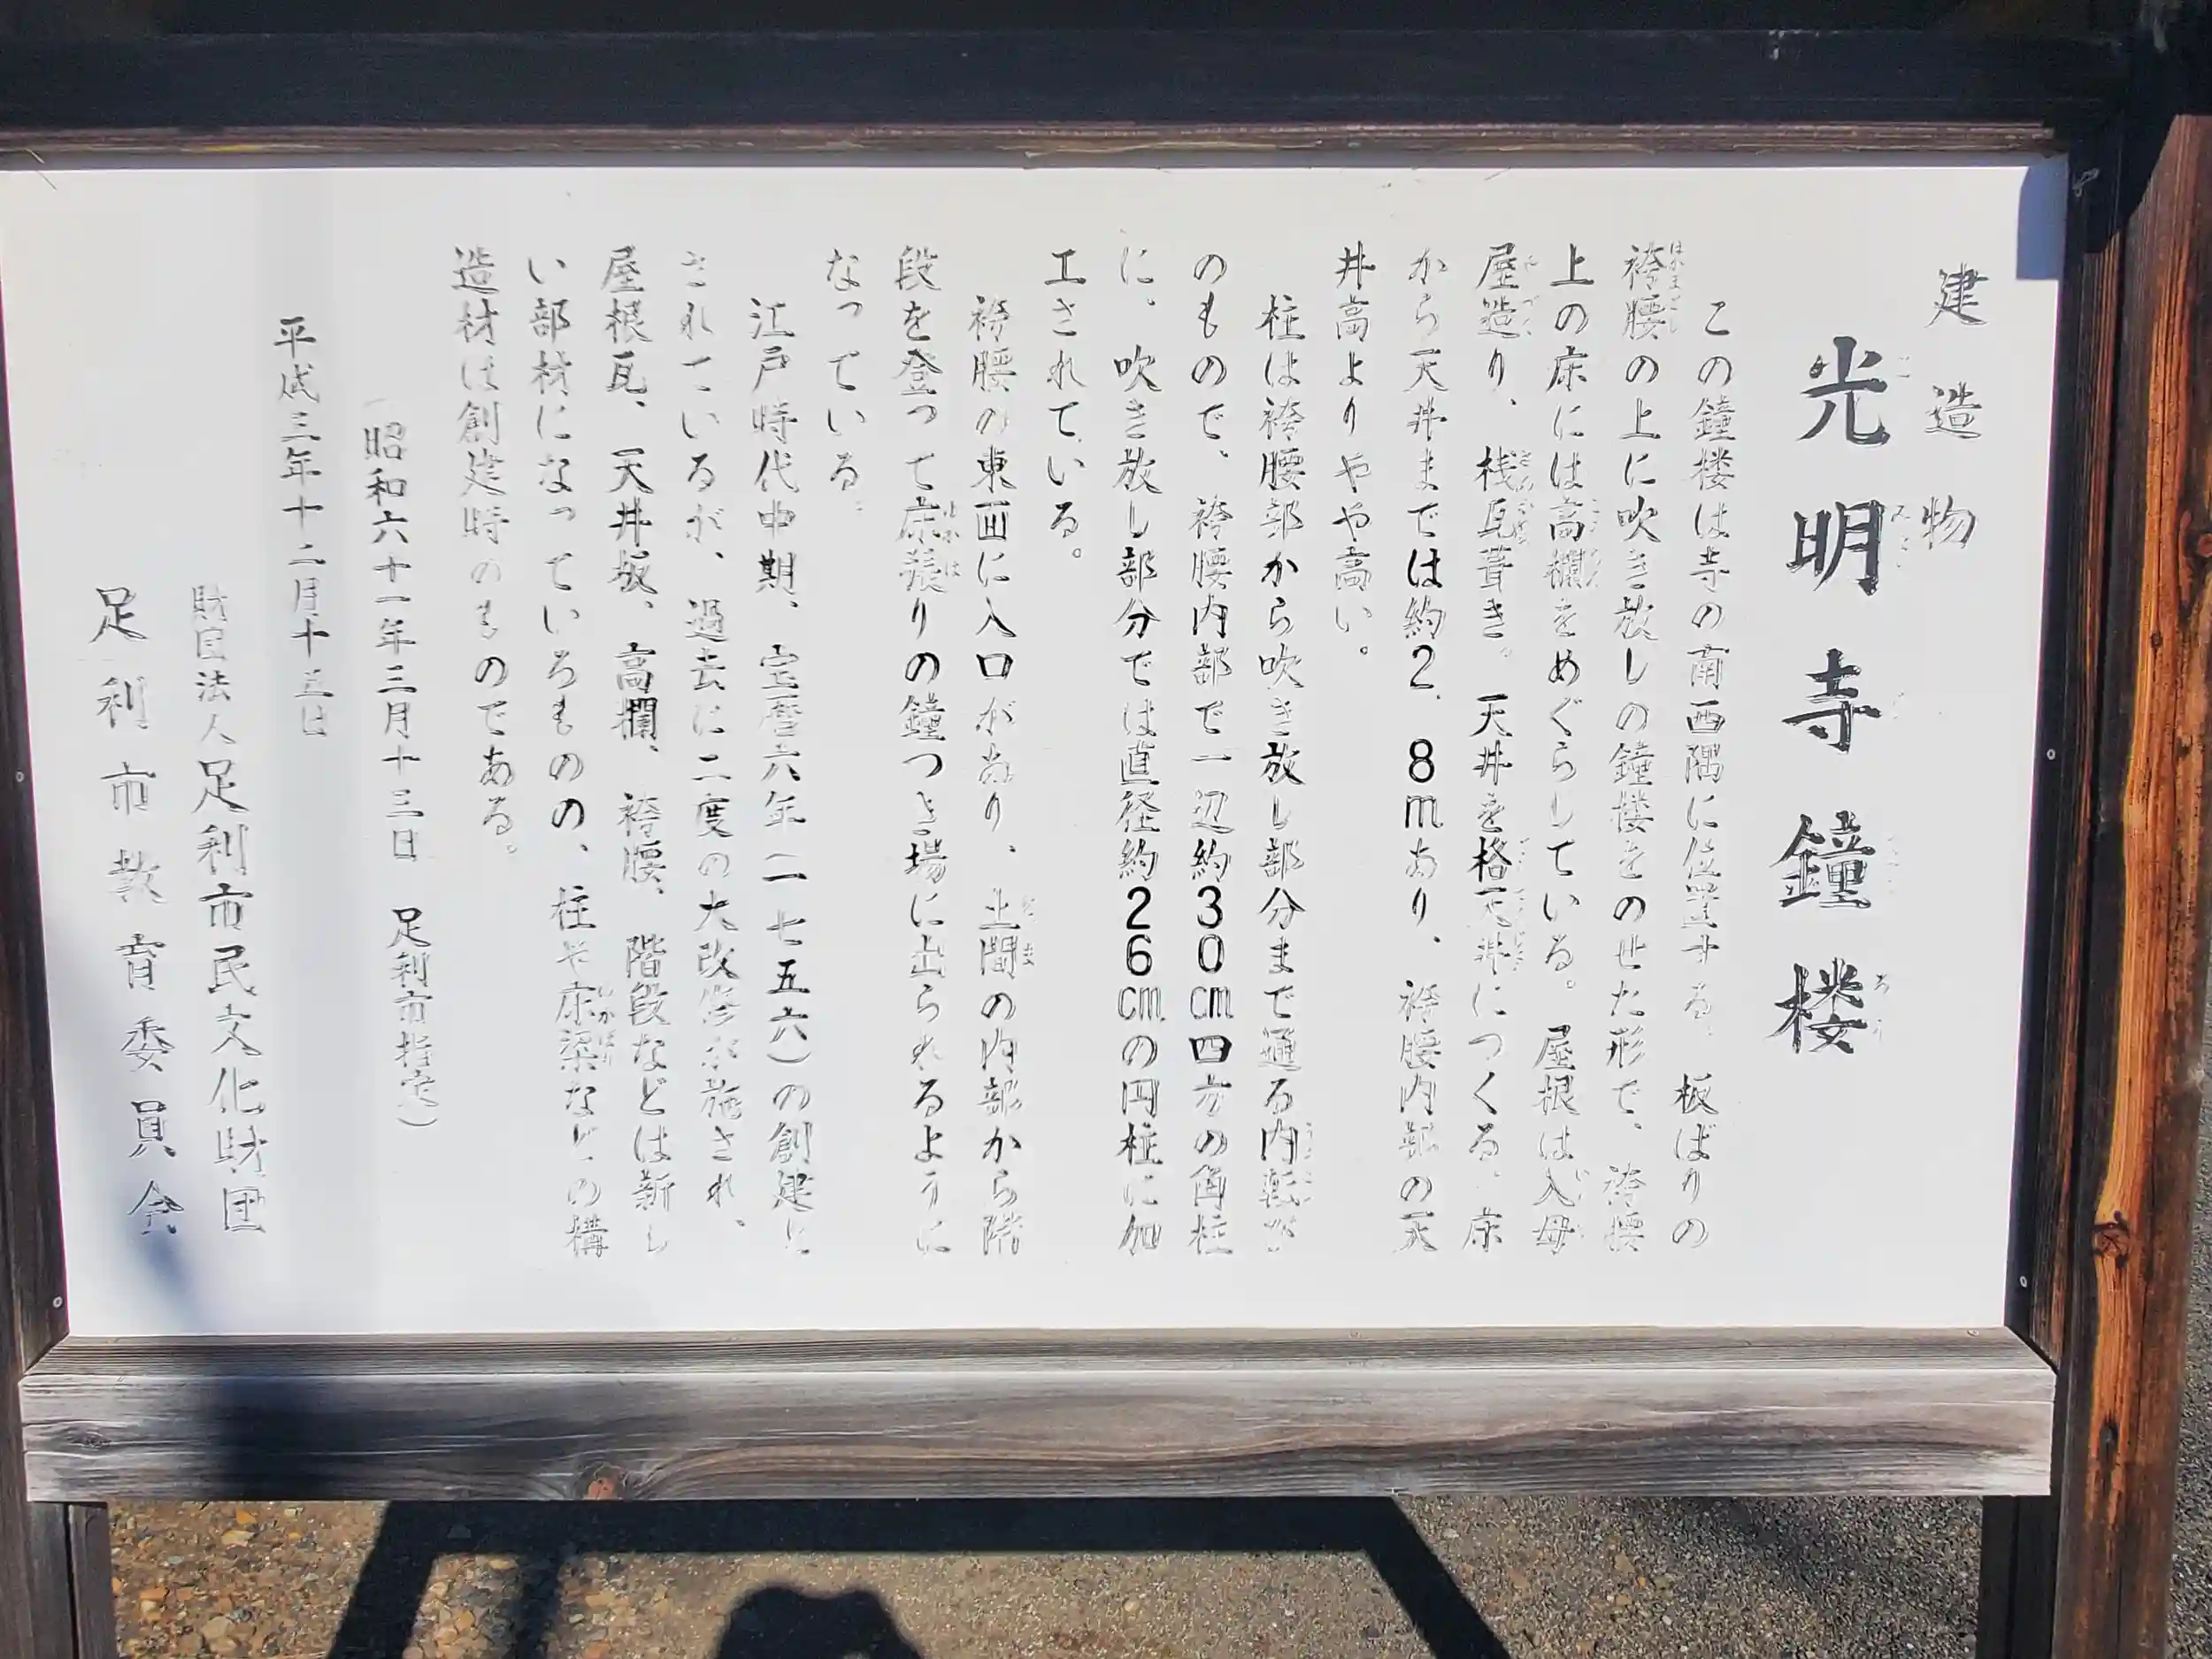 建造物
光明寺鐘楼
この鐘楼は寺の南西隅に位置する。板ばりの
袴腰の上に吹き放しの鐘楼をのせた形で、袴腰
上の床には高欄をめぐらしている。屋根は入母
屋造り、桟瓦葺き。天井を格天井につくる。床
から天井までは約2.8mあり、袴腰内部の天
井高よりやや高い。
柱は袴腰部から吹き放し部分まで通る内転び
のもので、袴腰内部で一辺約30cm四方の角柱
に、吹き放し部分では直径約26cmの円柱に加
工されている。
袴腰の東面に入口があり、土間の内部から階
段を登って床張りの鐘つき場に出られるように
なっている。
江戸時代中期、宝暦六年(一七五六)の創建と
されているが、過去に二度の大改修が施され、
屋根瓦、天井板、高欄、袴腰、階段などは新し
い部材になっているものの、柱や床梁などの構
造材は創建時のものである。
(昭和六十一年三月十三日 足利市指定)
平成三年十二月十五日
財団法人足利市民文化財団
足利市教育委員会